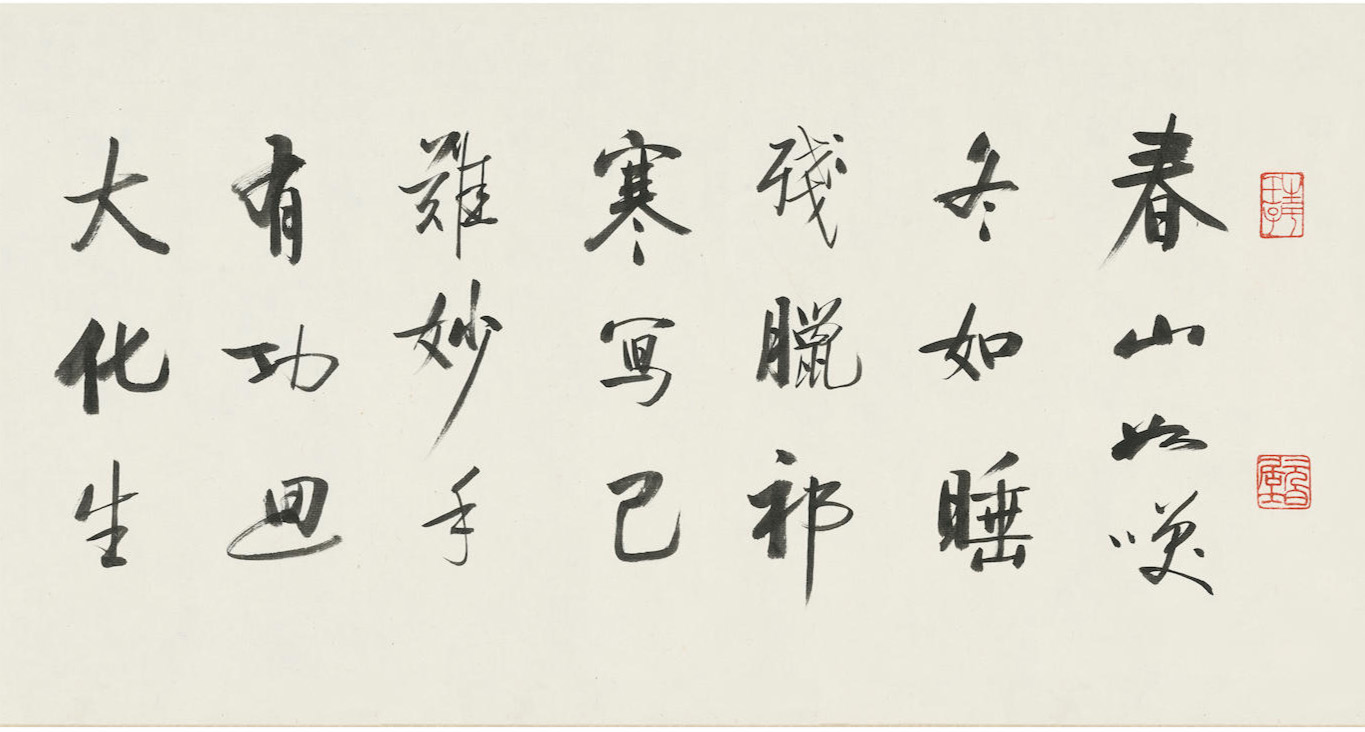 春山如笑
冬如睡
残臘祁
寒写已
難妙手
有功迴
大化生